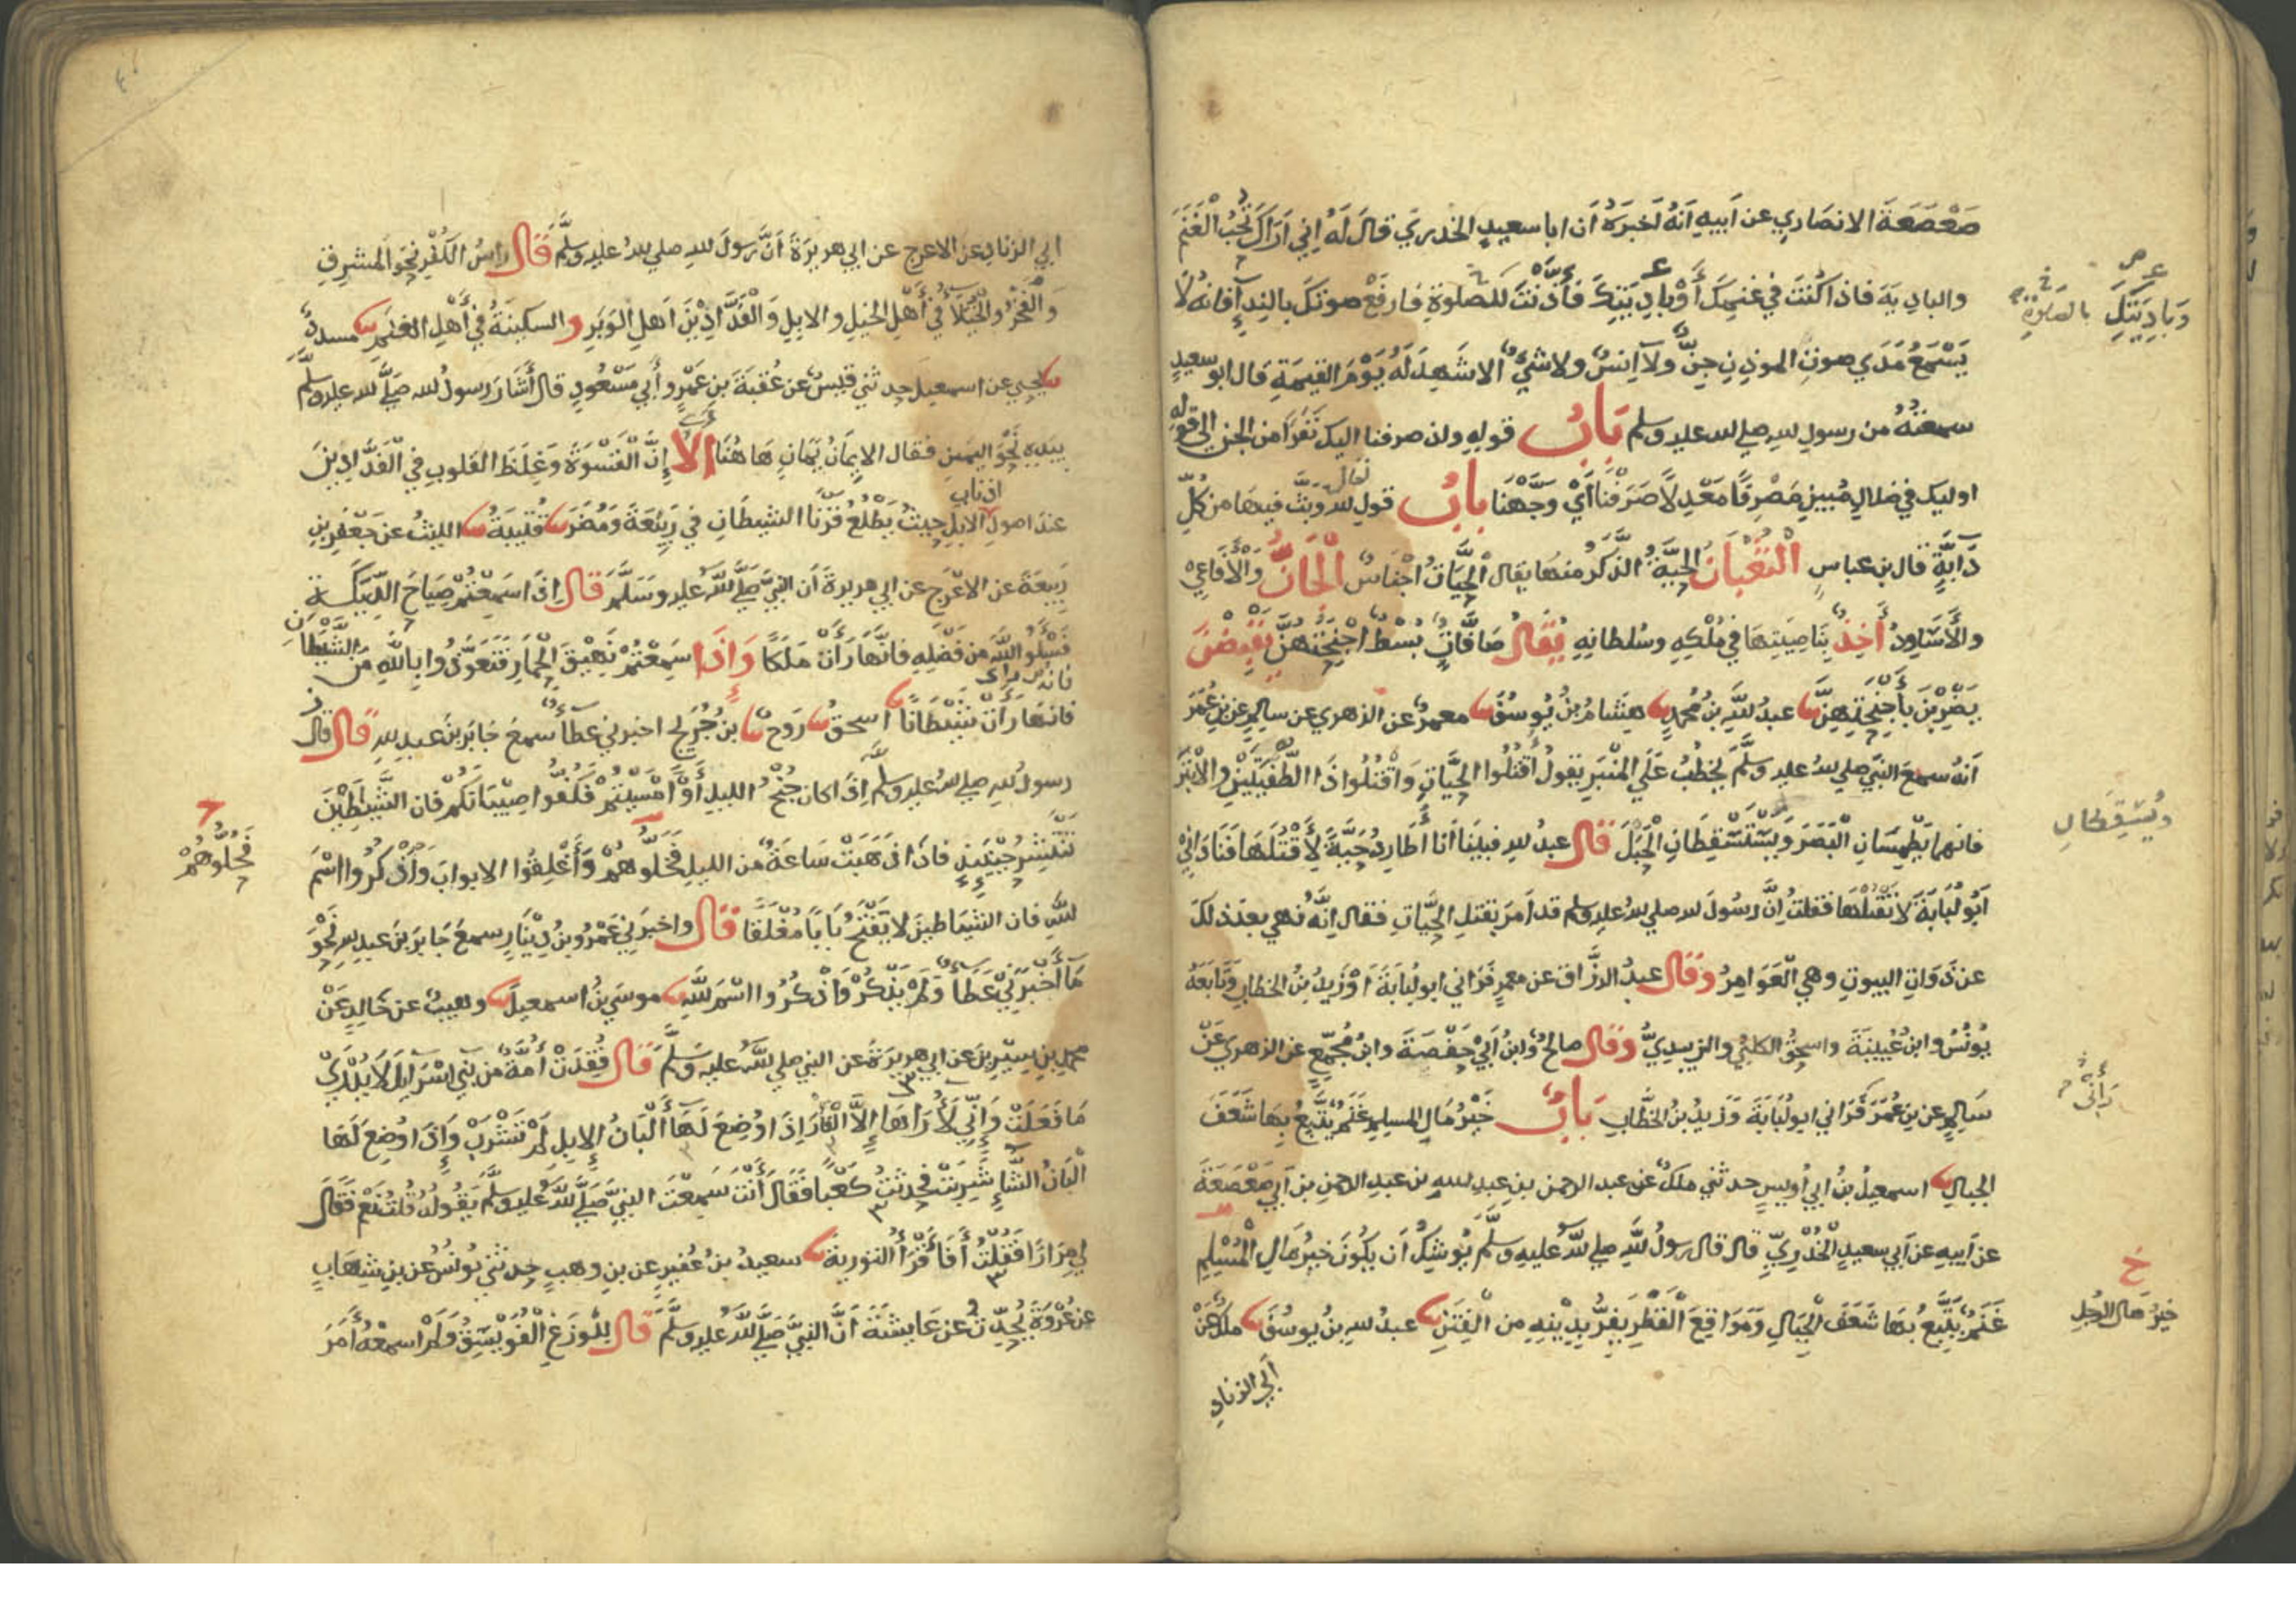 صَعْصَعَةَ الانصَارِي عن أبيهِ أنهُ أخبرَهُ أن ابا سعيدٍ الخدريَّ قالَ لَهُ إني أراكَ تُحِبُّ الْغَنَمَ
والباديةَ فاذا كُنتَ في غنمِكَ أَوْ بادِيَتِكَ فَأَذَّنْتَ للصلوةِ فارفَعْ صوتَكَ بالنِدآءِ فانه لا
يَسْمَعُ مَدَي صوتِ الموذنِ جِنٌّ ولا اِنسٌ ولا شيءٌ الا شَهِدَ لَهُ يَوْمَ القيمَةِ قال ابو سعيدٍ
سمعتُهُ من رسولِ لله صلي لله عليه وسلم بَابُ قولِهِ واذ صرفنا اليك نَفَرًا من الجن الي قوله
اوليك في ضلالٍ مُبينٍ مَصْرِفًا مَعْدِلًا صَرَفْنَا أَيْ وَجَّهْنَا بابُ قولِ لله تعالى وَبَثَّ فيها من كُلِّ
دَابَّةٍ قال بن عباسٍ الثُّعْبَانُ الحيَّةُ الذَّكَرُ منها يقال الْحَيَّاتُ اجْنَاسٌ الْجَانُّ وَالْأَفَاعِي
والْأَسَاوِدُ أَخِذٌ بِنَاصِيَتِهَا في مُلْكِهِ وسُلطانِهِ يُقَالُ صَافَّاتٌ بُسْطٌ اجْنِحَتَهُنَّ يَقْبِضْنَ
يَضْرِبْنَ بِأَجْنِحَتِهِنَّ عبدُ للهِ بنُ مُحمدٍ هِشَامُ بنُ يُوسُفَ معمرٌ عن الزهري عن سالمٍ عن بنِ عُمَرَ
انهُ سمعَ النبيَّ صلي لله عليه وسلَّمَ يخطُبُ عَلَي الْمِنْبَرِ يقولُ اُقْتُلُوا الحيَّاتِ وَاقْتُلُوا ذَا الطُّفْيَتَيْنِ والابْتَرَ
فانهما يَطْمِسَانِ الْبَصَرَ وَيَسْتَسْقِطَانِ الْحَبَلَ قال عبدُ للهِ فبينَا أنا أُطَارِدُ حَيَّةً لِأَقْتُلَهَا فَنَادَانِي
أَبُو لُبَابَةَ لا تَقْتُلْهَا فقلتُ إنَّ رسُولَ لله صلي لله عليه وسلم قد أمَرَ بقتلِ الحيَّاتِ فقال إنَّهُ نُهي بعدَ ذلك
عن ذَوَاتِ البيوتِ وهي الْعَوَامِرُ وَقَال عبدُ الرزَّاقِ عن معمرٍ فَرَاني ابو لُبَابَةَ أوْ زَيدُ بنُ الخطابِ وَتَابَعَهُ
يُونُسُ وابنُ عُيينَةَ واسحقُ الكلبيُّ والزبيديُّ وَقَال صالحٌ وابنُ أبي حَفْصَةَ وابنُ مُجَمِّعٍ عن الزهري عَنْ
سَالِمٍ عن بنِ عُمَرَ فَرَاني ابو لُبَابَةَ وَزَيدُ بنُ الخَطَّابِ بَابُ خَيْرُ مَالِ المسلمِ غَنَمٌ يَتَّبِعُ بِهَا شَعَفَ
الجبالِ اسمعيلُ بنُ ابي أُويسٍ حدثني ملكٌ عن عبد الرحمن بن عبدِ للهِ بن عبدِ الرحمنِ بن أبي صَعْصَعَةَ
عن أبيهِ عن أبي سعيدٍ الْخُدْرِيِّ قال قال رسولُ للهِ صلي للهُ عليهِ وسلَّمَ يُوشِكُ أن يكُونَ خيرُ مَالِ الْمُسْلِمِ
غَنَمٌ يَتَّبِعُ بِهَا شَعَفَ الجِبَالِ وَمَوَاقِعَ الْقَطْرِ يَفِرُّ بِدِيْنِهِ من الْفِتَنِ عبدُ لله بنُ يوسُفَ ملكٌ عَنْ
أبي الزنادِ
وَبَادِيَتِكَ
بالصلوة
ويُسْقِطَانِ
رَأَنِي
خ
خيرُ مَالِ الرجُلِ
ابي الزنادِ عن الاعرجِ عن ابي هريرةَ أنَّ رسولَ للهِ صلي للهُ عليه وسلَّمَ قَال راسُ الكُفْرِ نحوَ المشرِقِ
وَالْفَخْرُ والْخُيَلَاءُ في أَهْلِ الخيلِ والابلِ وَالْفَدَّادِيْنَ أهلِ الْوَبَرِ والسكينَةُ في أهْلِ الغَنَمِ مسددٌ
يَحيي عن اسمعيلَ حدثني قيسٌ عن عُقبَةَ بن عَمْرٍو أبي مَسْعُودٍ قال أشَارَ رسولُ لله صَلَّي لله عليه وسلَّم
بيدِهِ نَحْوَ اليمنِ فقال الايمَانُ يَمَانٍ هَاهُنَا أَلَا إِنَّ الْقَسْوَةَ وَغِلَظَ القلوبِ في الْفَدَّادِينَ
عندَ اصولِ اذنابِ الابلِ حيثُ يَطْلُعُ قَرْنَا الشيطانِ في رَبِيْعَةَ وَمُضَرَ قُتيبَةُ الليثُ عن جَعْفَرِ بنِ
رَبيعَةَ عن الاعْرَجِ عن ابي هريرةَ أن النبيَّ صَلَّي للهُ عليه وسَلَّمَ قَال إذَا سَمِعْتُمْ صِيَاحَ الدِّيَكَةِ
فَسْئَلُوا اللهَ من فَضْلِهِ فإنَّهَا رَأَتْ مَلَكًا وَإِذَا سَمِعْتُمْ نَهِيْقَ الْحِمَارِ فَتَعَوَّذُوا بِاللهِ مِنَ الشَّيْطَانِ
فانها رَأَتْ شَيْطَانًا اسحقُ رَوحٌ بنُ جُرَيجٍ اخبرني عطآءٌ سمعَ جَابَرَ بنَ عبدِ للهِ قَال قال
رسولُ للهِ صلي للهُ عليه وسلم إذَا كان جُنْحُ الليلِ أَوْ أَمْسَيْتُمْ فَكُفُّوا صِبْيَانَكُمْ فان الشَّيَطِيْنَ
تَنْتَشِرُ حِيْنَئِذٍ فاذَا ذَهَبَتْ سَاعَةٌ من الليلِ فَخَلُّوهُمْ وَأَغْلِقُوا الابوابَ وَاذْكُرُوا اسْمَ
للهِ فان الشيَاطينَ لا يَفْتَحُ بَابًا مُغْلَقًا قَال واخبرَني عَمْرُو بنُ دِيْنَارٍ سمعَ جَابَرَ بنَ عبدِ للهِ نَحْوَ
مَا أَخْبَرَنِي عَطَآءٌ وَلَمْ يَذْكُرْ وَاذْكُرُوا اسْمَ للهِ موسَي بنُ اسمعيلَ وهيبٌ عن خَالِدٍ عَنْ
محمد بنِ سِيْرِينَ عن ابي هريرَةَ عن النبي صلي للهُ عليه وسَلَّمَ قَال فُقِدَتْ أُمَّةٌ من بَنِي اسْرَآئِلَ لَا يُدْرَي
مَا فَعَلَتْ وَإِنِّي لَأُرَاهَا إلَّا الْفَأرَ إِذَا وُضِعَ لَهَا أَلْبَانُ الإبِلِ لَمْ تَشْرَبْ وَإِذَا وُضِعَ لَهَا
أَلْبَانُ الشَّآءِ شَرِبَتْ فحدثتُ كَعْبًا فَقَال أَنْتَ سَمِعْتَ النبيَّ صَلَّي للهُ عليه وسلَّمَ يَقُولُهُ قُلتُ نعَمْ فَقَال
لِي مِرَارًا فَقُلْتُ أَفَأَقْرَأُ التورية سعيدُ بنُ عُفيرٍ عن بنِ وهبٍ حدثني يُونُسُ عن بنِ شِهَابٍ
عن عُرْوَةَ يُحَدِّثُ عن عَايِشَةَ أنَّ النبيَّ صَلَّي للهُ عليه وسلَّمَ قَال للْوَزَغِ الْفُوَيْسِقُ وَلَمْ اسمعْهُ أَمَرَ
فَحُلُّوهُمْ